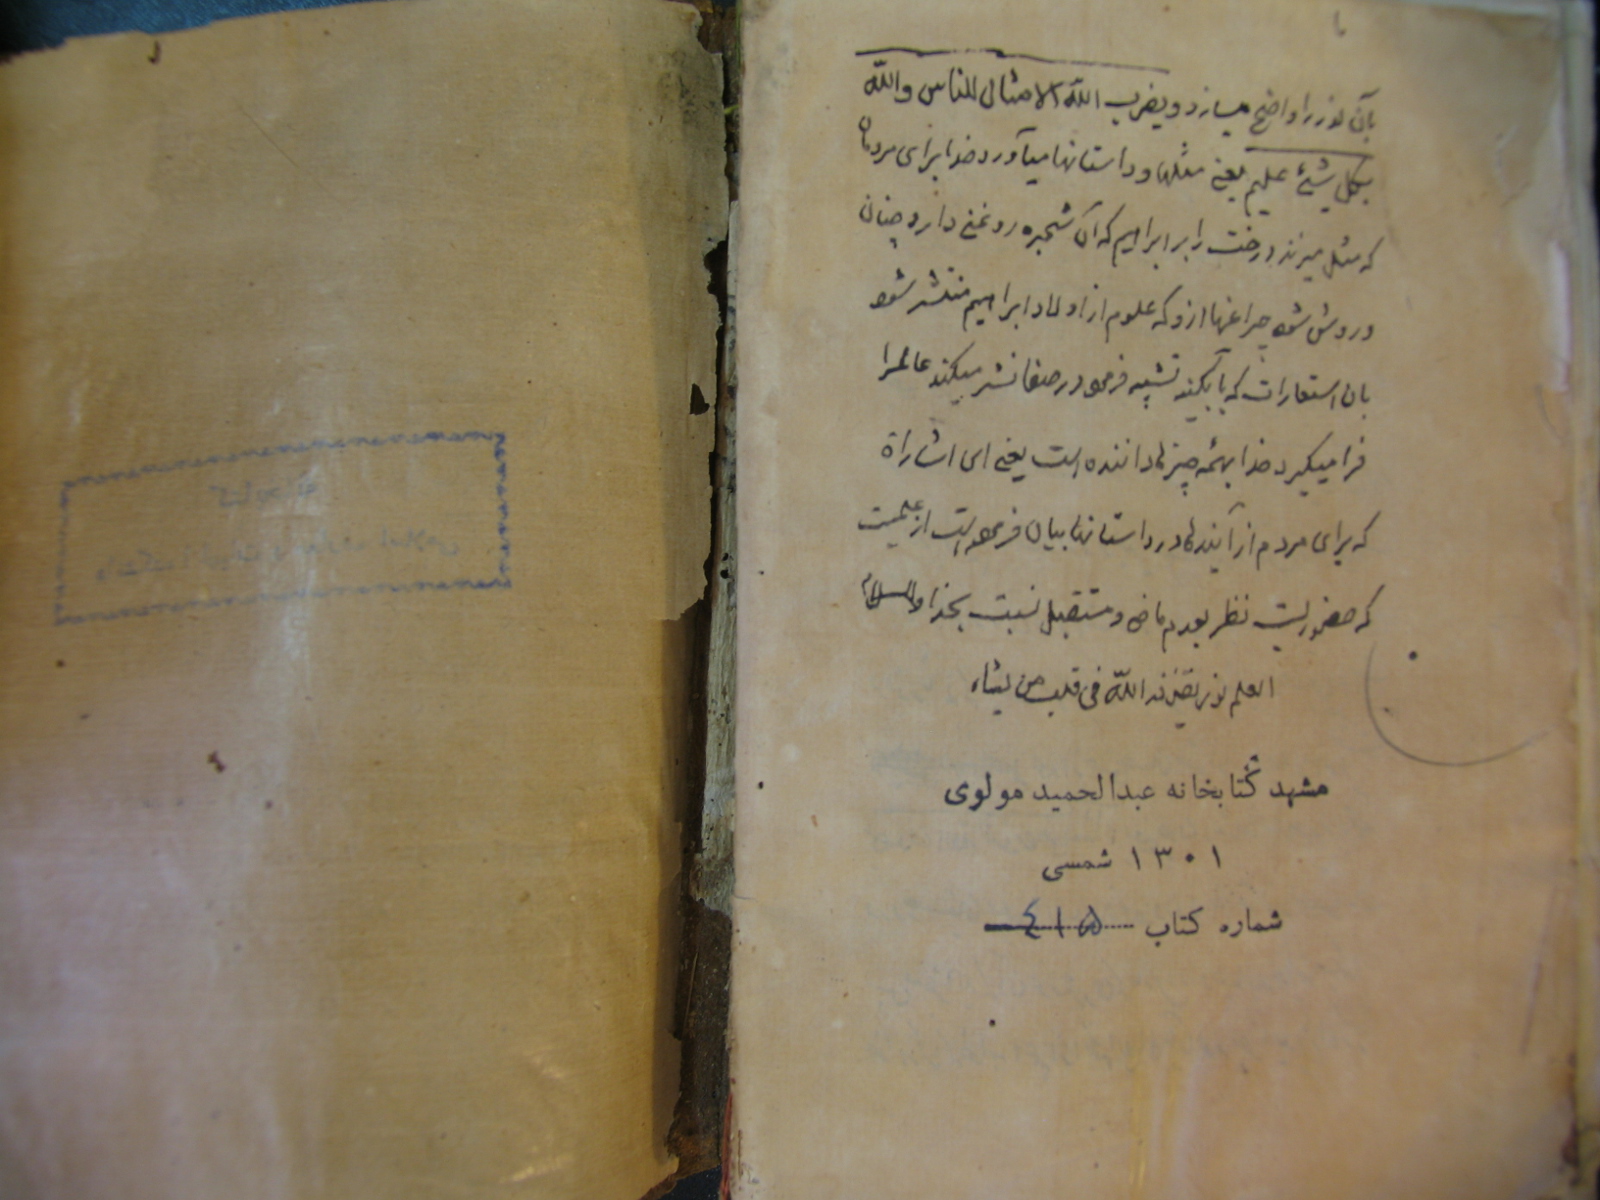 بآن نور را واضح میسازد ویضرب الله الامثال للناس والله
بکل شیئ علیم یعنی مثلها و داستانها میآورد خدا برای مردمان
که مثل میزند درخت را بر ابراهیم که آن شجره روغنی دارد چنان
و روشن شود چراغها ازو که علوم از اولاد ابراهیم منتشر شود
بان استعارات که بآبگینه تشبیه فرموده در صفا نشر میکند عالمرا
فرا میگیرد خدا بهمه چیزها داننده است یعنی ای اشاراة
که برای مردم از آینده‌ها در داستانها بیان فرموده است از علمیت
که حضوریست نظر بعدم ماضی و مستقبل نسبت بخدا والسلام
العلم نور یقذفه الله فی قلب من یشاء
مشهد کتابخانه عبدالحمید مولوی
۱۳۰۱ شمسی
شماره کتاب ٤١۵
کتابخانه
دانشکده الهیات و معارف اسلامی